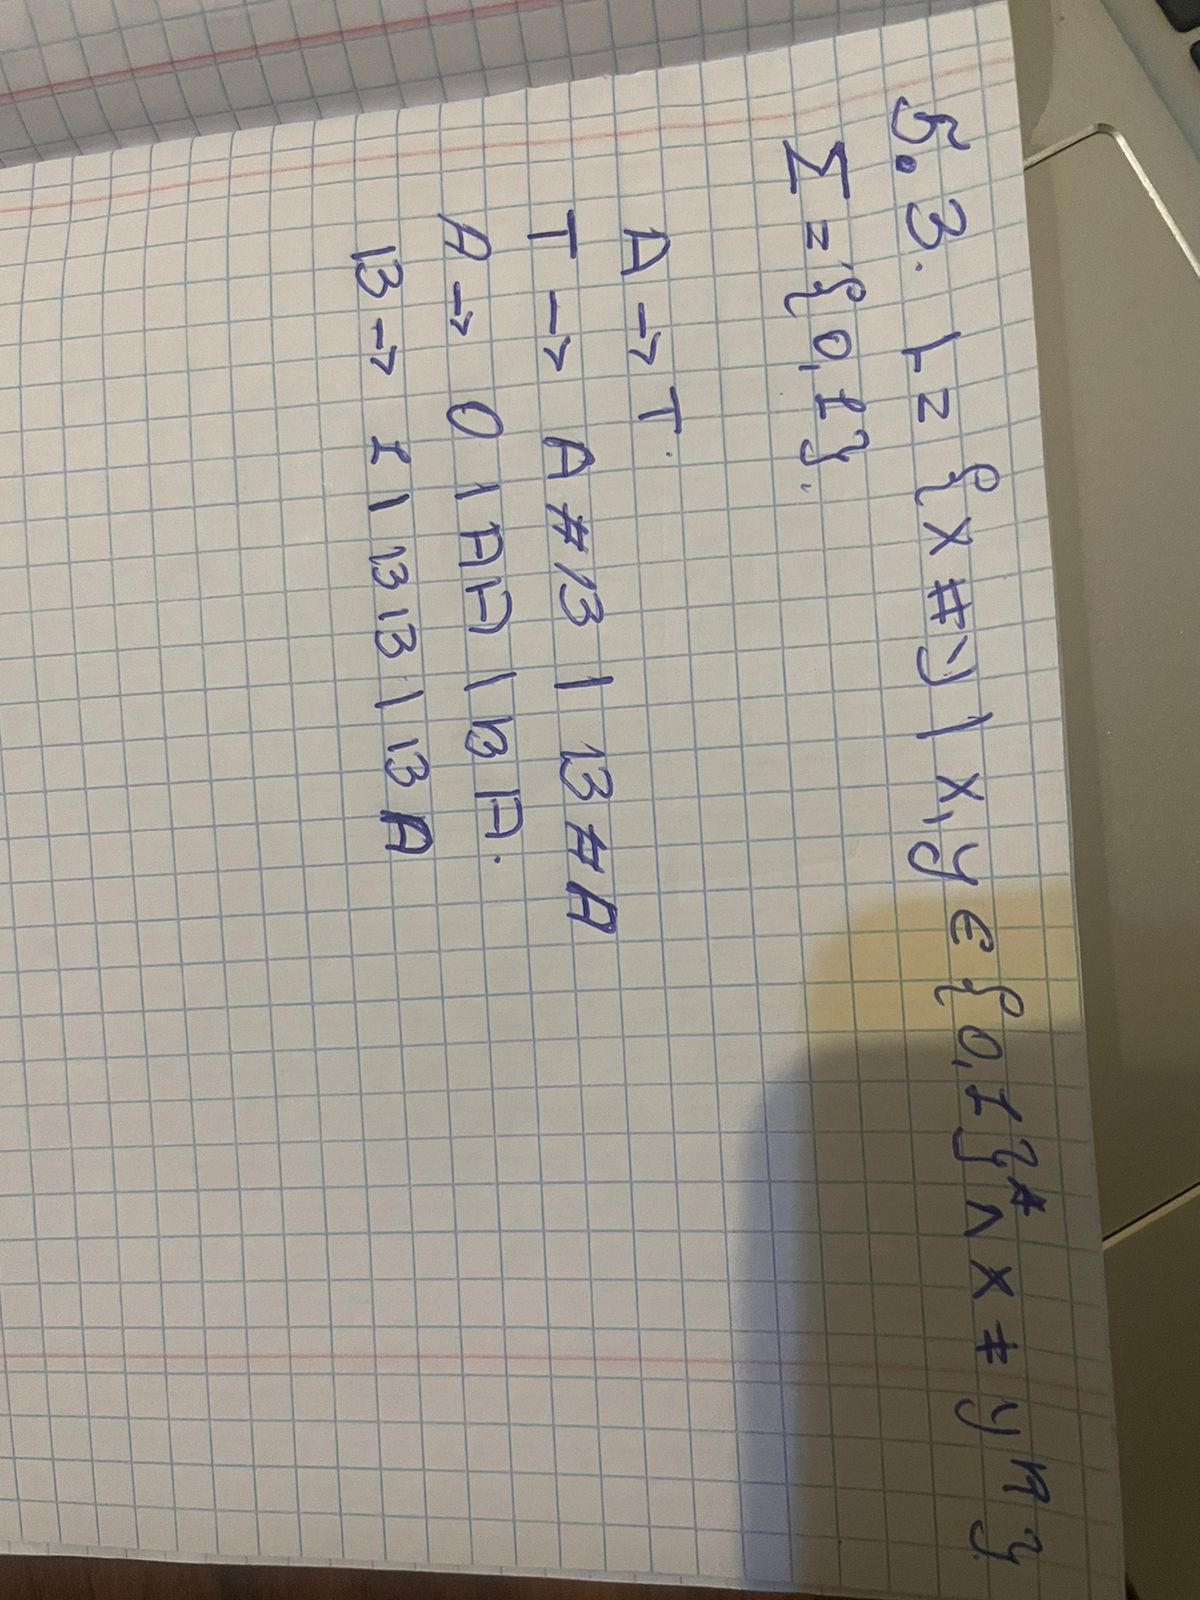 5.3. L = {x # y | x, y ∈ {0,1}* ∧ x ≠ y^R}
Σ = {0, 1}.
A → T.
T → A # B | B # A
A → 0 | AA | BA.
B → 1 | BB | BA